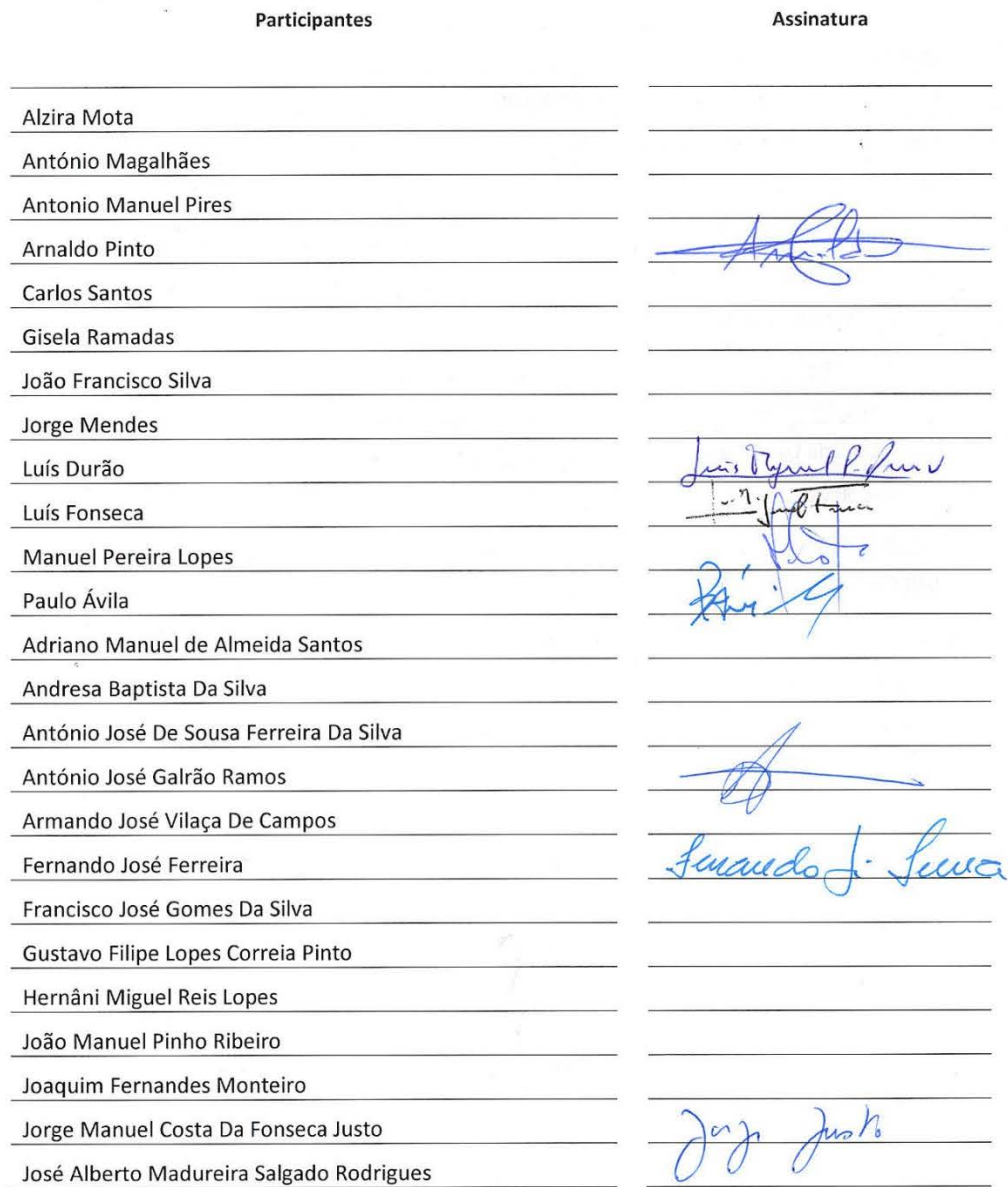 Participantes Assinatura
Alzira Mota
António Magalhães
Antonio Manuel Pires
Arnaldo Pinto
Carlos Santos
Gisela Ramadas
João Francisco Silva
Jorge Mendes
Luís Durão Luis Miguel P.
Luís Fonseca
Manuel Pereira Lopes
Paulo Ávila
Adriano Manuel de Almeida Santos
Andresa Baptista Da Silva
António José De Sousa Ferreira Da Silva
António José Galrão Ramos
Armando José Vilaça De Campos
Fernando José Ferreira Fernando J.
Francisco José Gomes Da Silva
Gustavo Filipe Lopes Correia Pinto
Hernâni Miguel Reis Lopes
João Manuel Pinho Ribeiro
Joaquim Fernandes Monteiro
Jorge Manuel Costa Da Fonseca Justo Jorge Justo
José Alberto Madureira Salgado Rodrigues